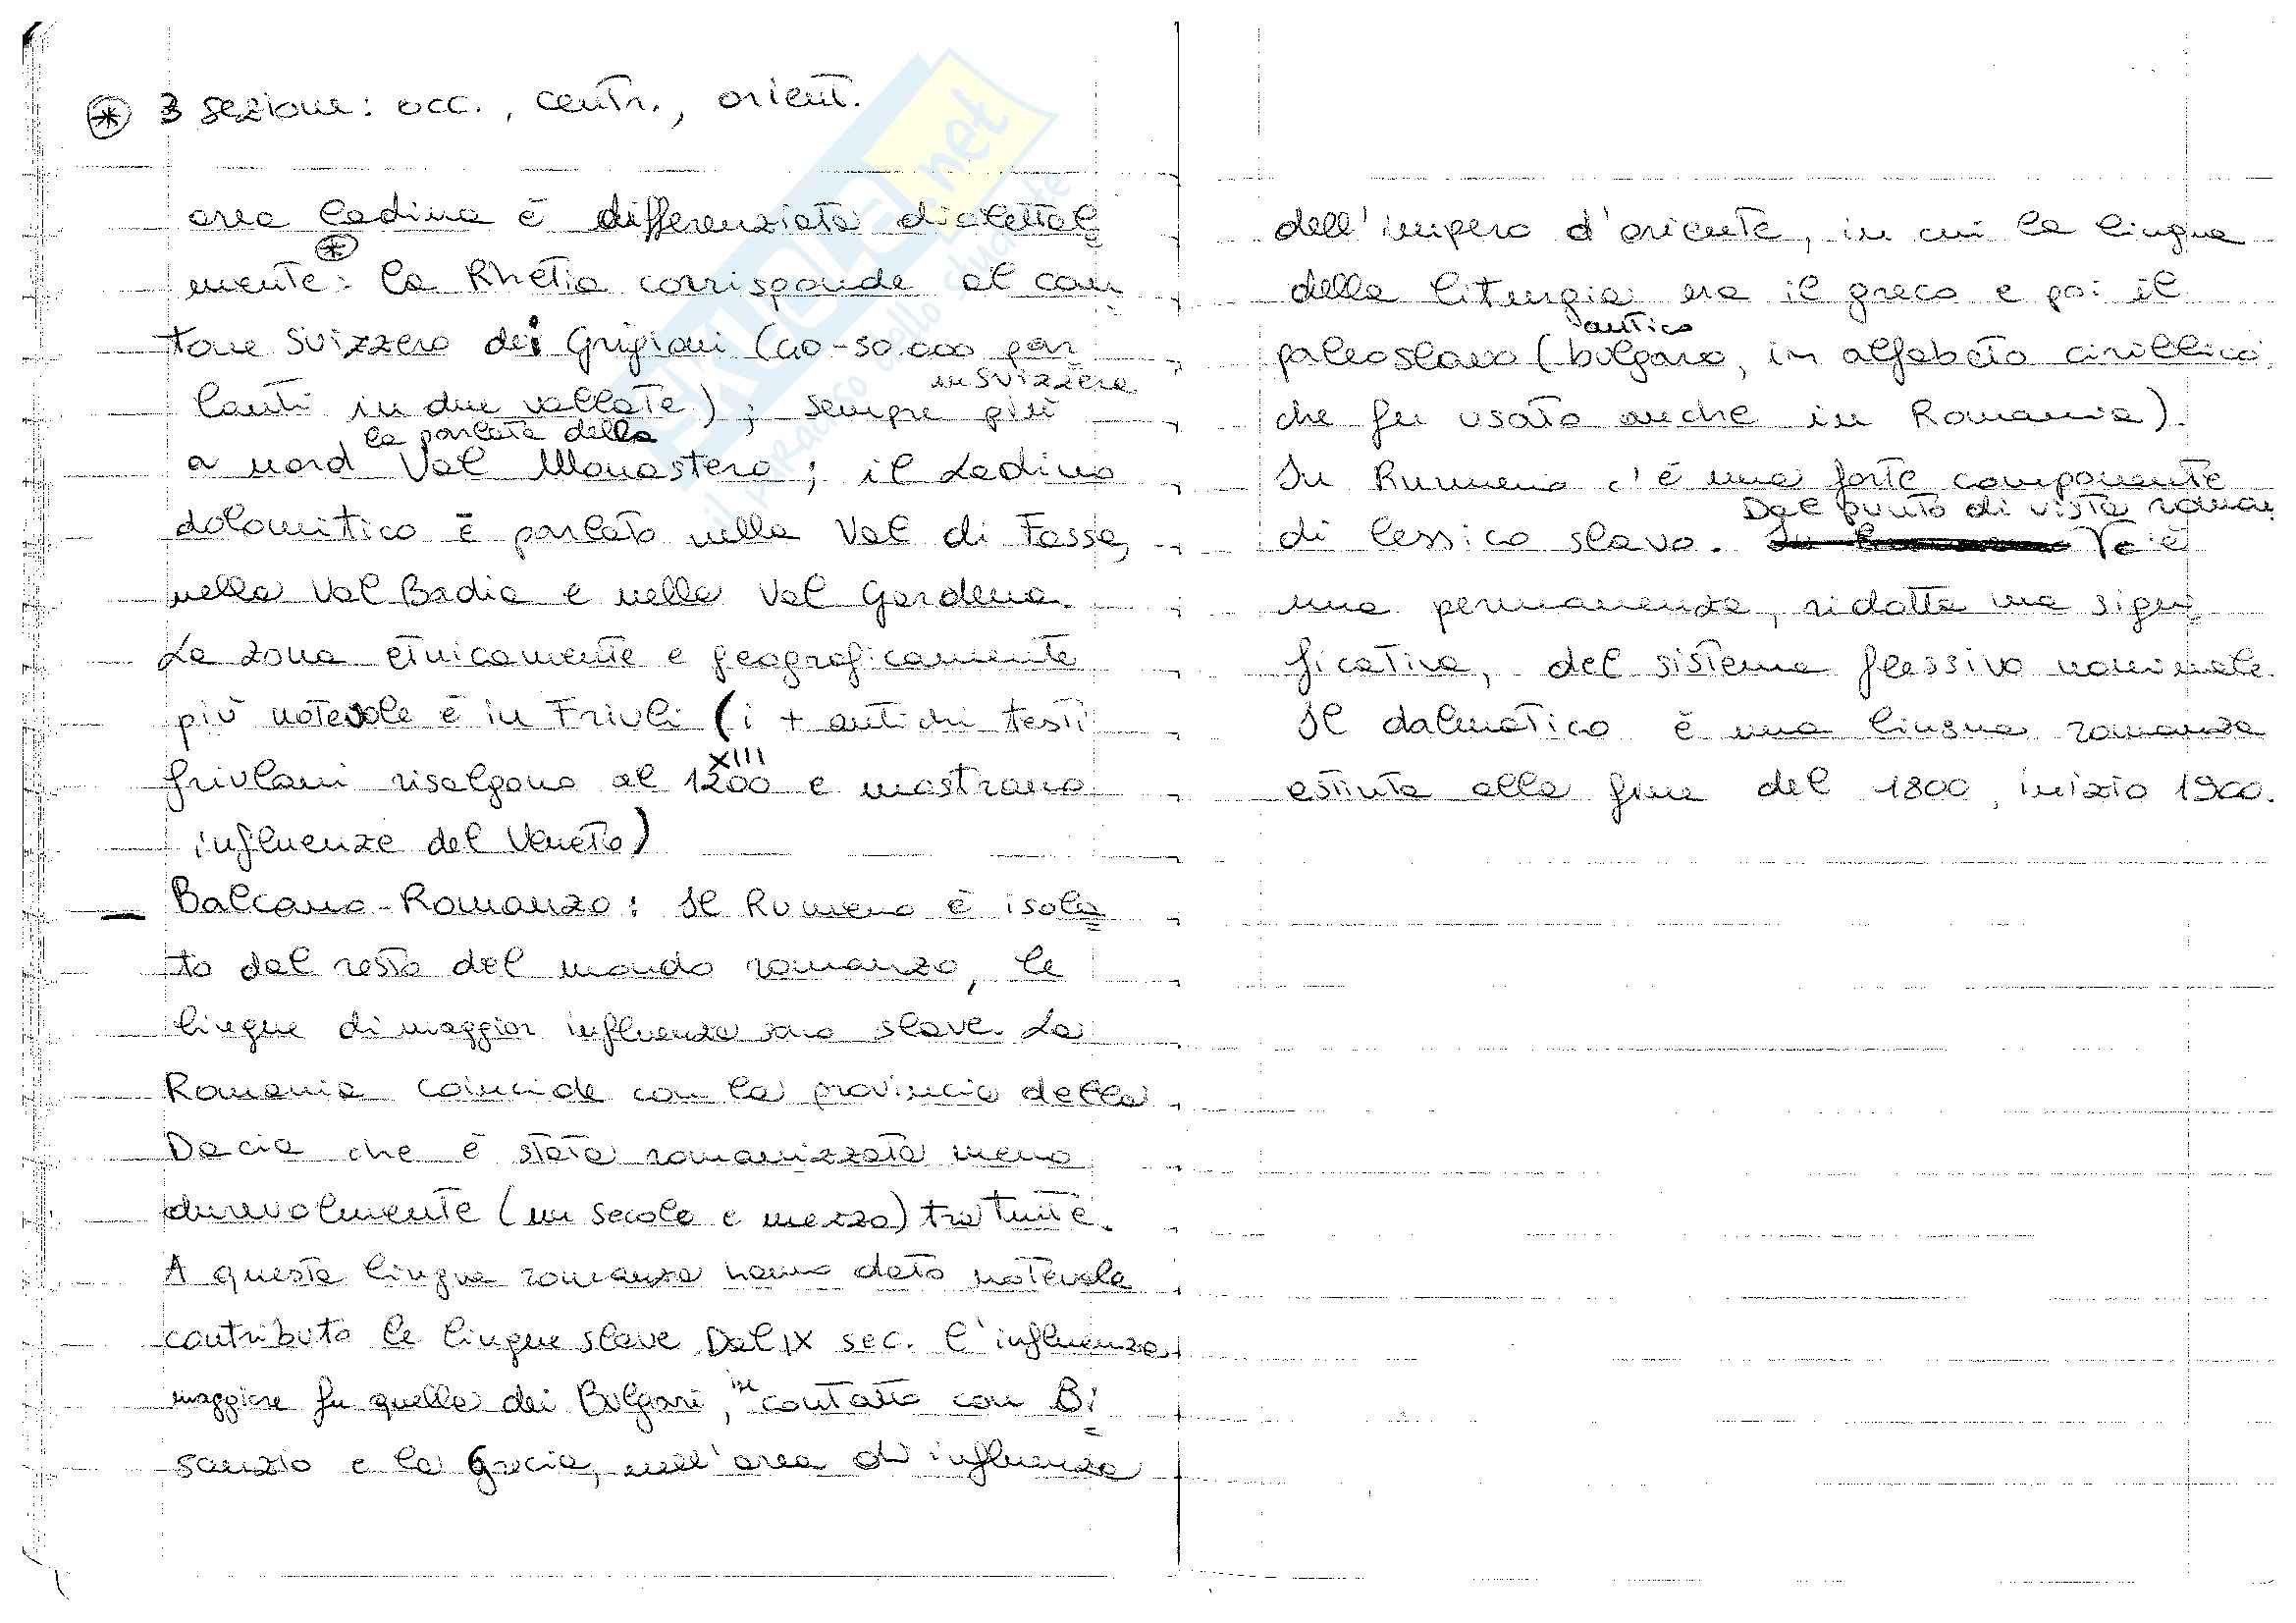 ⊛ 3 sezione: occ., centr., orient.
area ladina è differenziata dialettal=
mente ⊛: la Rhetia corrisponde al can
tone Svizzero dei Grigioni (40-50.000 par
lanti in due vallate); sempre più in Svizzera
a nord la parlata della Val Monastero; il Ladino
dolomitico è parlato nella Val di Fassa,
nella Val Badia e nella Val Gardena.
La zona etnicamente e geograficamente
più notevole è in Friuli (i + antichi testi
friulani risalgono al 1200 XIII e mostrano
influenze del Veneto)
- Balcano-Romanzo: Il Rumeno è isola=
to dal resto del mondo romanzo, le
lingue di maggior influenza sono slave. La
Romania coincide con la provincia della
Dacia che è stata romanizzata meno
durevolmente (un secolo e mezzo) tra tutte.
A questa lingua romanza hanno dato notevole
contributo le lingue slave Dal IX sec. l'influenza
maggiore fu quella dei Bulgari, in contatto con Bi=
sanzio e la Grecia, nell'area di influenza
dell'impero d'oriente, in cui la lingua
della liturgia era il greco e poi il
paleoslavo (antico bulgaro, in alfabeto cirillico,
che fu usato anche in Romania).
In Rumeno c'è una forte componente
di lessico slavo. Dal punto di vista roman
zo è
una permanenza, ridotta ma signi
ficativa, del sistema flessivo nominale.
Il dalmatico è una lingua romanza
estinta alla fine del 1800, inizio 1900.